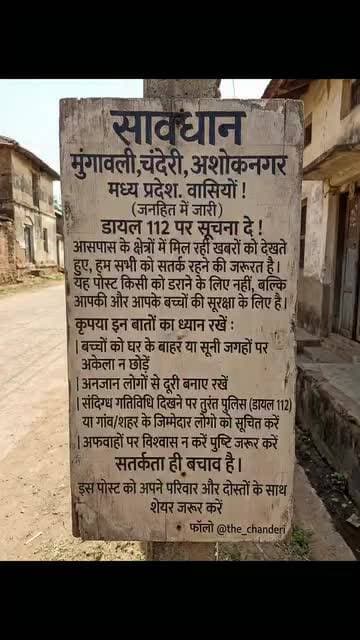 सावधान
मुंगावली,चंदेरी,अशोकनगर
मध्य प्रदेश. वासियों !
(जनहित में जारी)
डायल 112 पर सूचना दे !
आसपास के क्षेत्रों में मिल रही खबरों को देखते
हुए, हम सभी को सतर्क रहने की जरूरत है।
यह पोस्ट किसी को डराने के लिए नहीं, बल्कि
आपकी और आपके बच्चों की सुरक्षा के लिए है।
कृपया इन बातों का ध्यान रखें :
| बच्चों को घर के बाहर या सूनी जगहों पर
अकेला न छोड़ें
| अनजान लोगों से दूरी बनाए रखें
| संदिग्ध गतिविधि दिखने पर तुरंत पुलिस (डायल 112)
या गांव/शहर के जिम्मेदार लोगो को सूचित करें
| अफवाहों पर विश्वास न करें पुष्टि जरूर करें
सतर्कता ही बचाव है।
इस पोस्ट को अपने परिवार और दोस्तों के साथ
शेयर जरूर करें
• फॉलो @the_chanderi